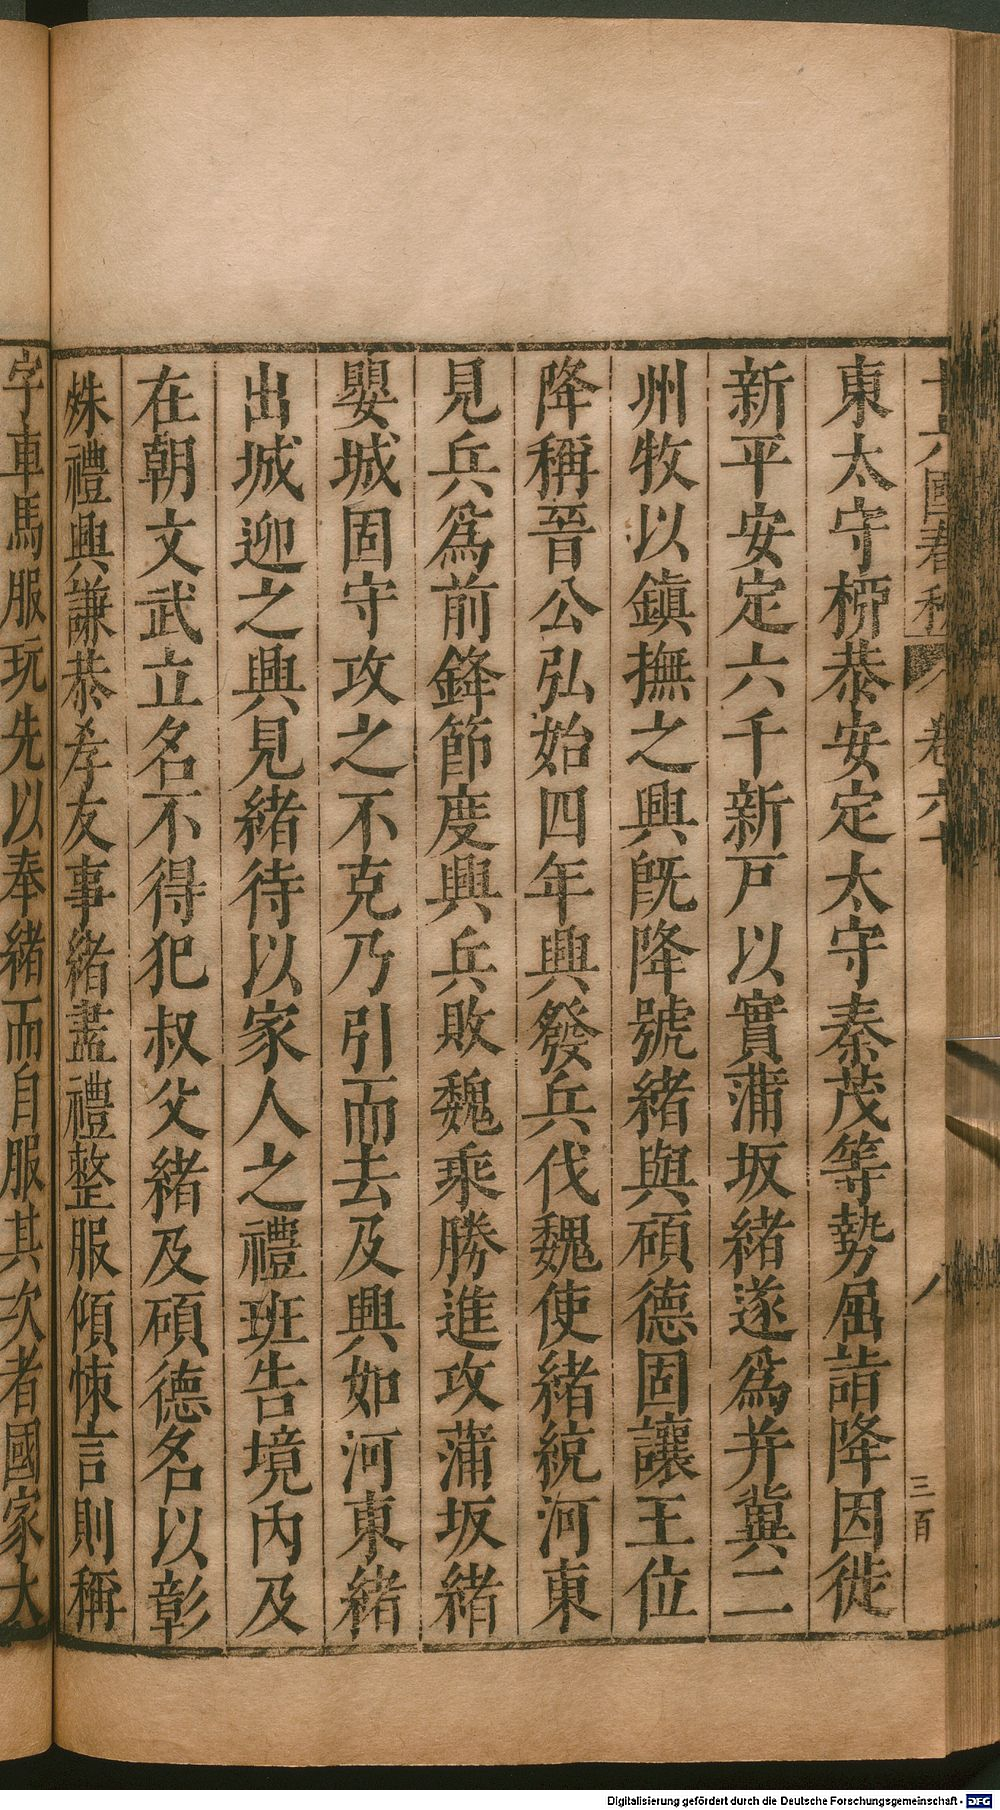 十六國春秋 卷六十 八 三百
東太守桺恭安定太守秦茂等勢屈詣降因徙
新平安定六千新戸以實蒲坂緒遂爲并冀二
州牧以鎮撫之興旣降號緒與碩德固讓王位
降稱晉公弘始四年興發兵伐魏使緒統河東
見兵爲前鋒節度興兵敗魏乘勝進攻蒲坂緒
嬰城固守攻之不克乃引而去及興如河東緒
出城迎之興見緒待以家人之禮班告境內及
在朝文武立名不得犯叔父緒及碩德名以彰
殊禮興謙恭孝友事緒盡禮整服傾悚言則稱
字車馬服玩先以奉緒而自服其次者國家大
Digitalisierung gefördert durch die Deutsche Forschungsgemeinschaft - DFG